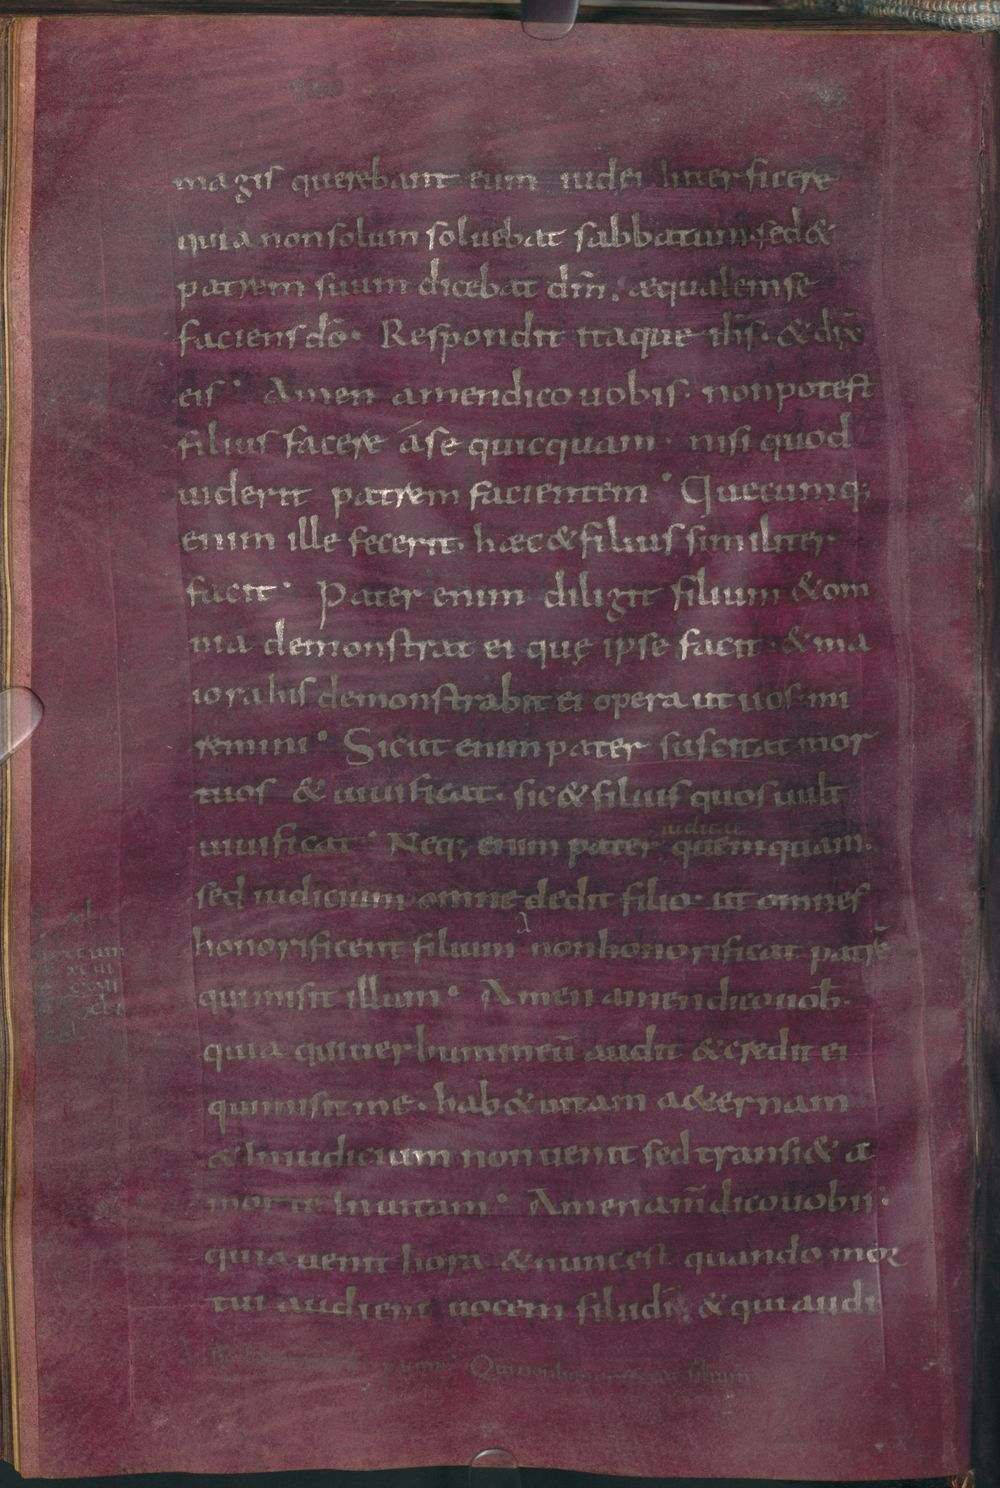 magis querebant eum iudei interficere
quia non solum soluebat sabbatum. sed &
patrem suum dicebat dm̄. aequalem se
faciens dō. Respondit itaque ihs̄. & dix̄
eis. Amen amen dico uobis. non potest
filius facere a se quicquam. nisi quod
uiderit patrem facientem. Quecumq;
enim ille fecerit. haec & filius similiter
facit. Pater enim diligit filium & om
nia demonstrat ei quę ipse facit. & ma
iora his demonstrabit ei opera ut uos mi
remini. Sicut enim pater suscitat mor
tuos & uiuificat. sic & filius quos uult
iudicat
uiuificat. Neq; enim pater quemquam.
sed iudicium omne dedit filio. ut omnes
honorificent filium non honorificat patrē
qui misit illum. Amen amen dico uob̄.
quia qui uerbum meū audit & credit ei
qui misit me. hab& uitam aeternam
& in iudicium non uenit sed transi& a
morte in uitam. Amen am̄ dico uobis.
quia uenit hora & nunc est quando mor
tui audient uocem filii dī. & qui audi
Qui non honorificat filium